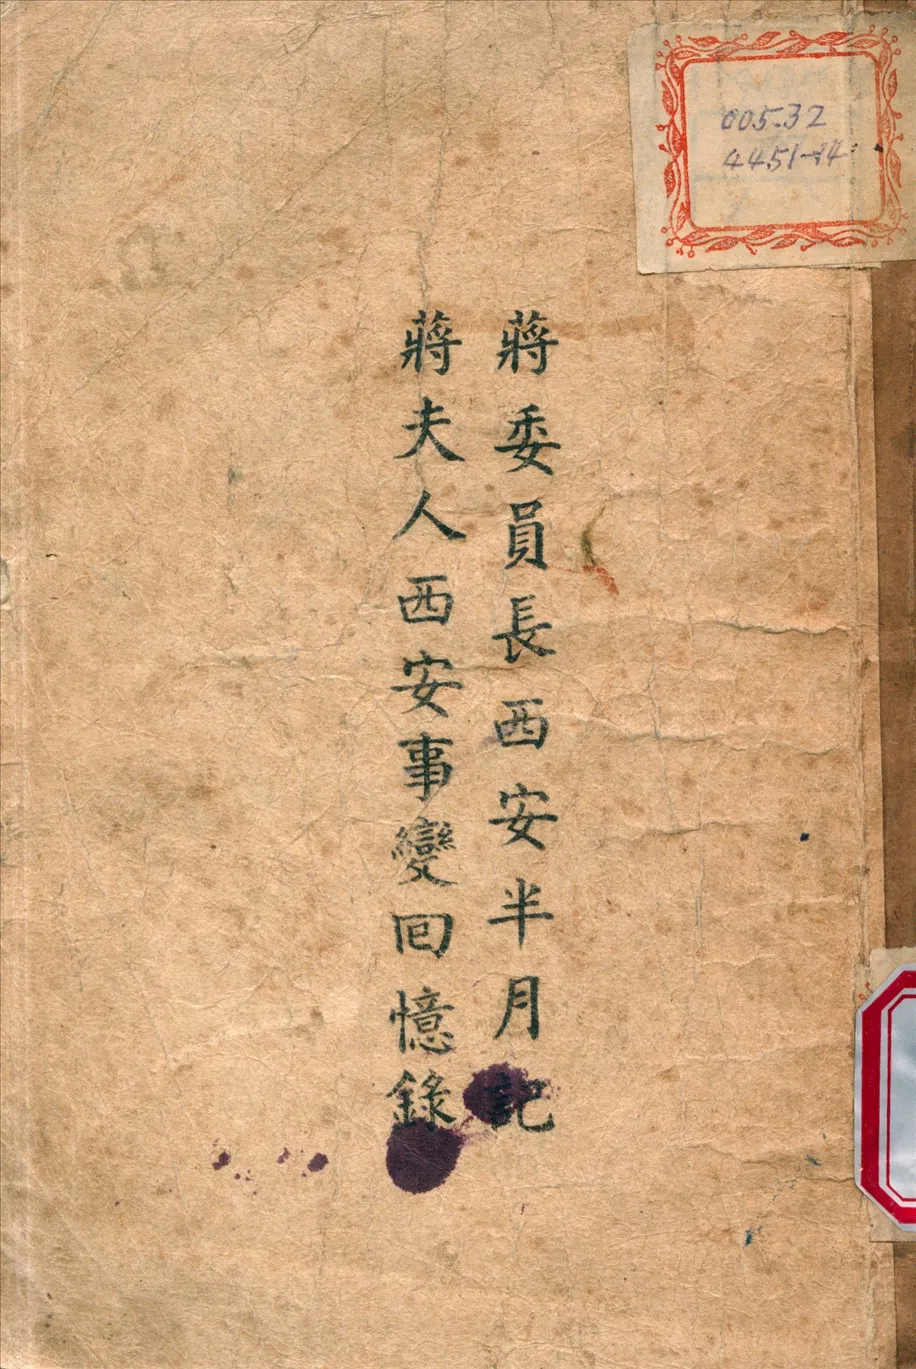 蔣委員長西安半月記
蔣夫人西安事變回憶錄
005.32
4451-14